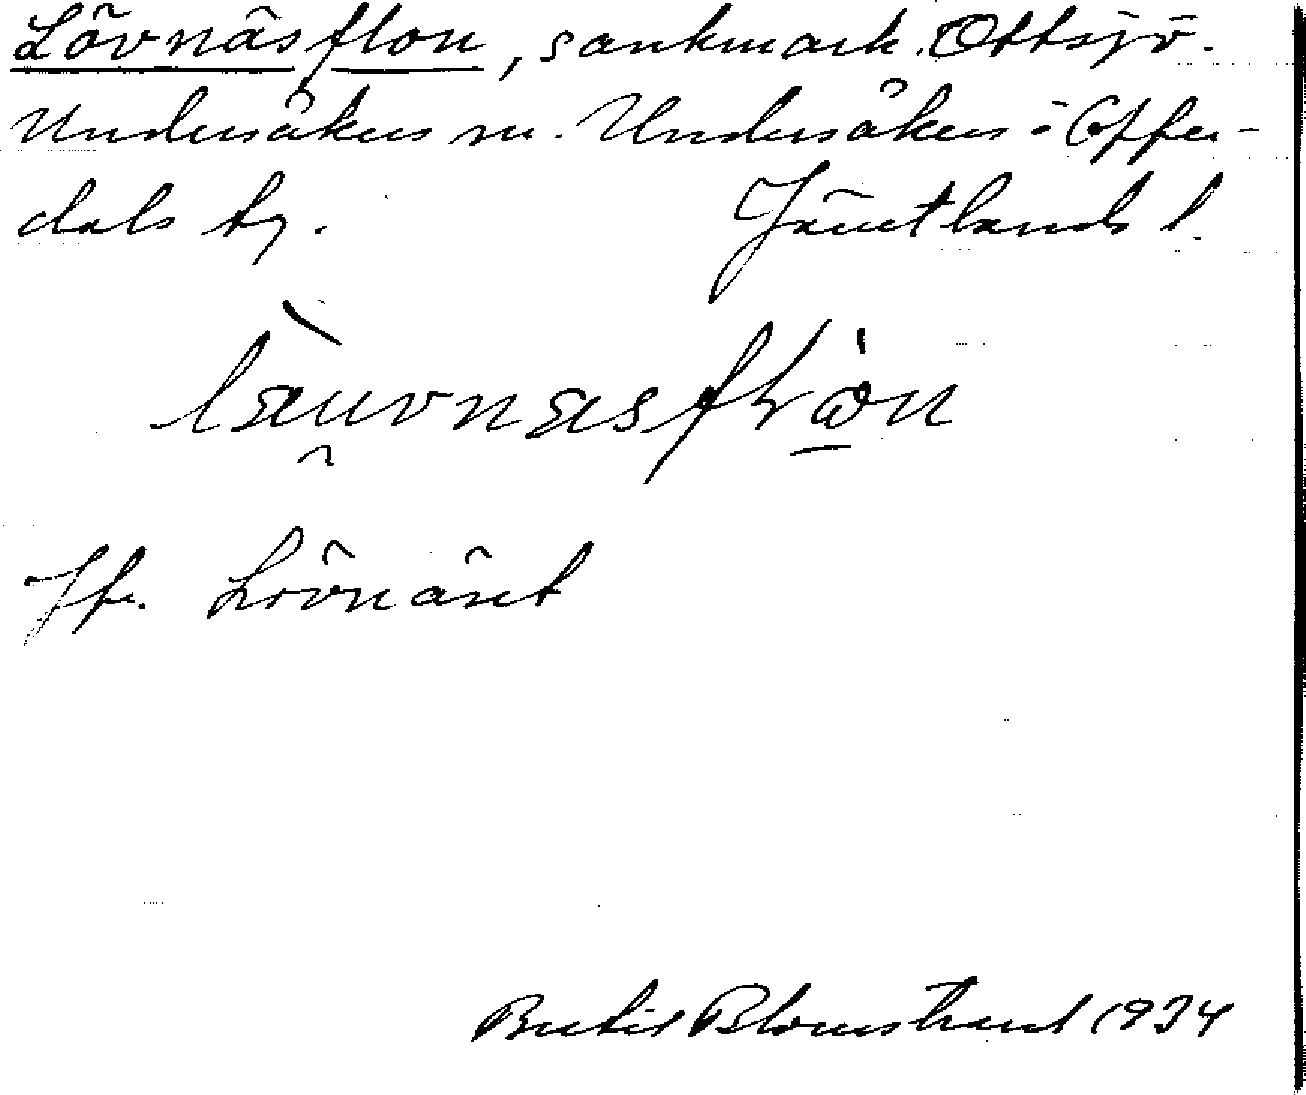 Lövnäsflon, sankmark. Ottsjö.
Undersåkers sn. Undersåkers o Offer-
dals tg. Jämtlands l.
Jfr. Lövnäset
Bertil Blomstrand 1934